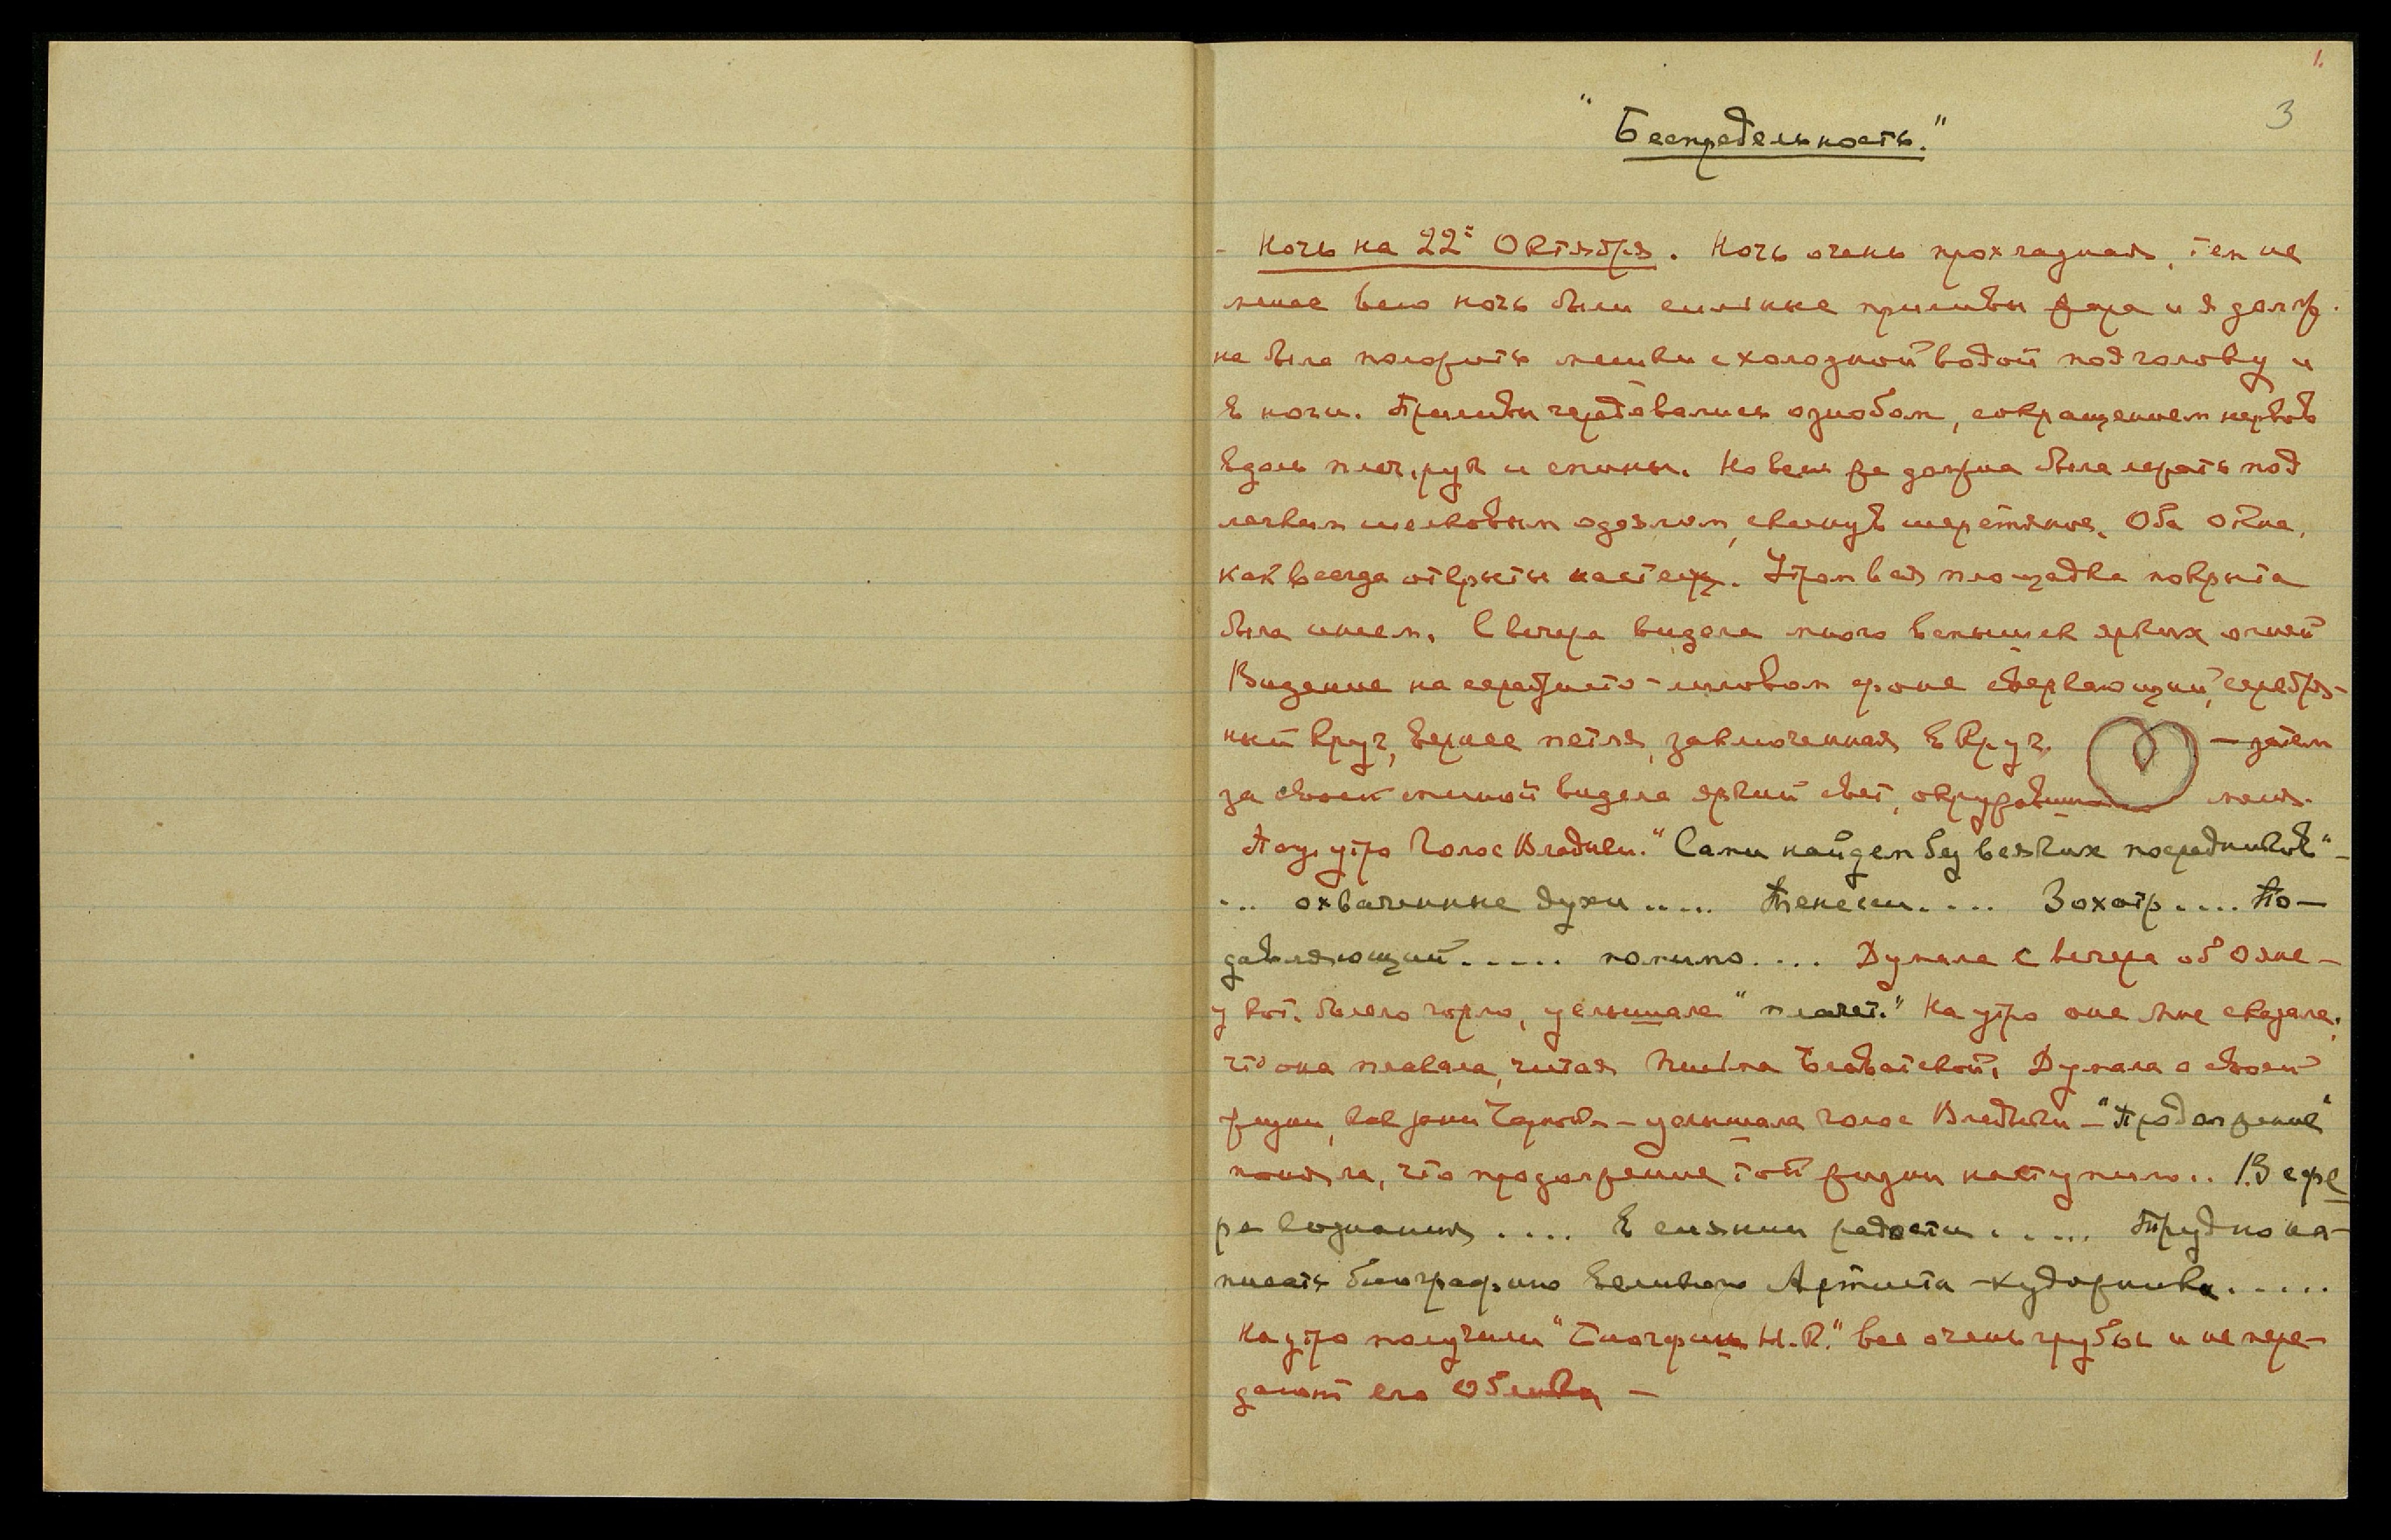 1.
3
"Беспредельность."
- Ночь на 22ое Октября. Ночь очень прохладная, тем не
менее всю ночь были сильные приливы жара и я долж-
на была положить мешки с холодной водой под голову и
в ноги. Приливы чередовались ознобом, сокращением нервов
вдоль плеч, рук и спины. Но все же должна была лежать под
легким шелковым одеялом, скинув шерстяное. Оба окна,
как всегда открыты настежь. Утром вся площадка покрыта
была инеем. С вечера видела много вспышек ярких огней
Видение на серебристо-лиловом фоне сверкающий, серебря-
ный круг, вернее петля, заключенная в круг. — затем
за своей спиной видела яркий свет, окружавший меня.
Под утро Голос Владыки. "Сами найдем без всяких посредников" -
... охваченные духи ..... Тенесси .... Зохатр .... По-
давляющий ..... помимо .... Думала с вечера об Ояне -
у кот. болело горло, услышала "плачет." На утро она мне сказала,
что она плакала, читая Письма Блаватской. Думала о своей
жизни, как жены Чарновы - услышала голос Владыки - "Продолжение"
поняла, что продолжение той жизни наступило.. В сфе
ре сознания .... В сиянии радости ..... Трудно на-
писать биографию Великого Артиста - художника .....
На утро получили "Биографии Н.К." все очень грубы и не пере-
дают его облика —